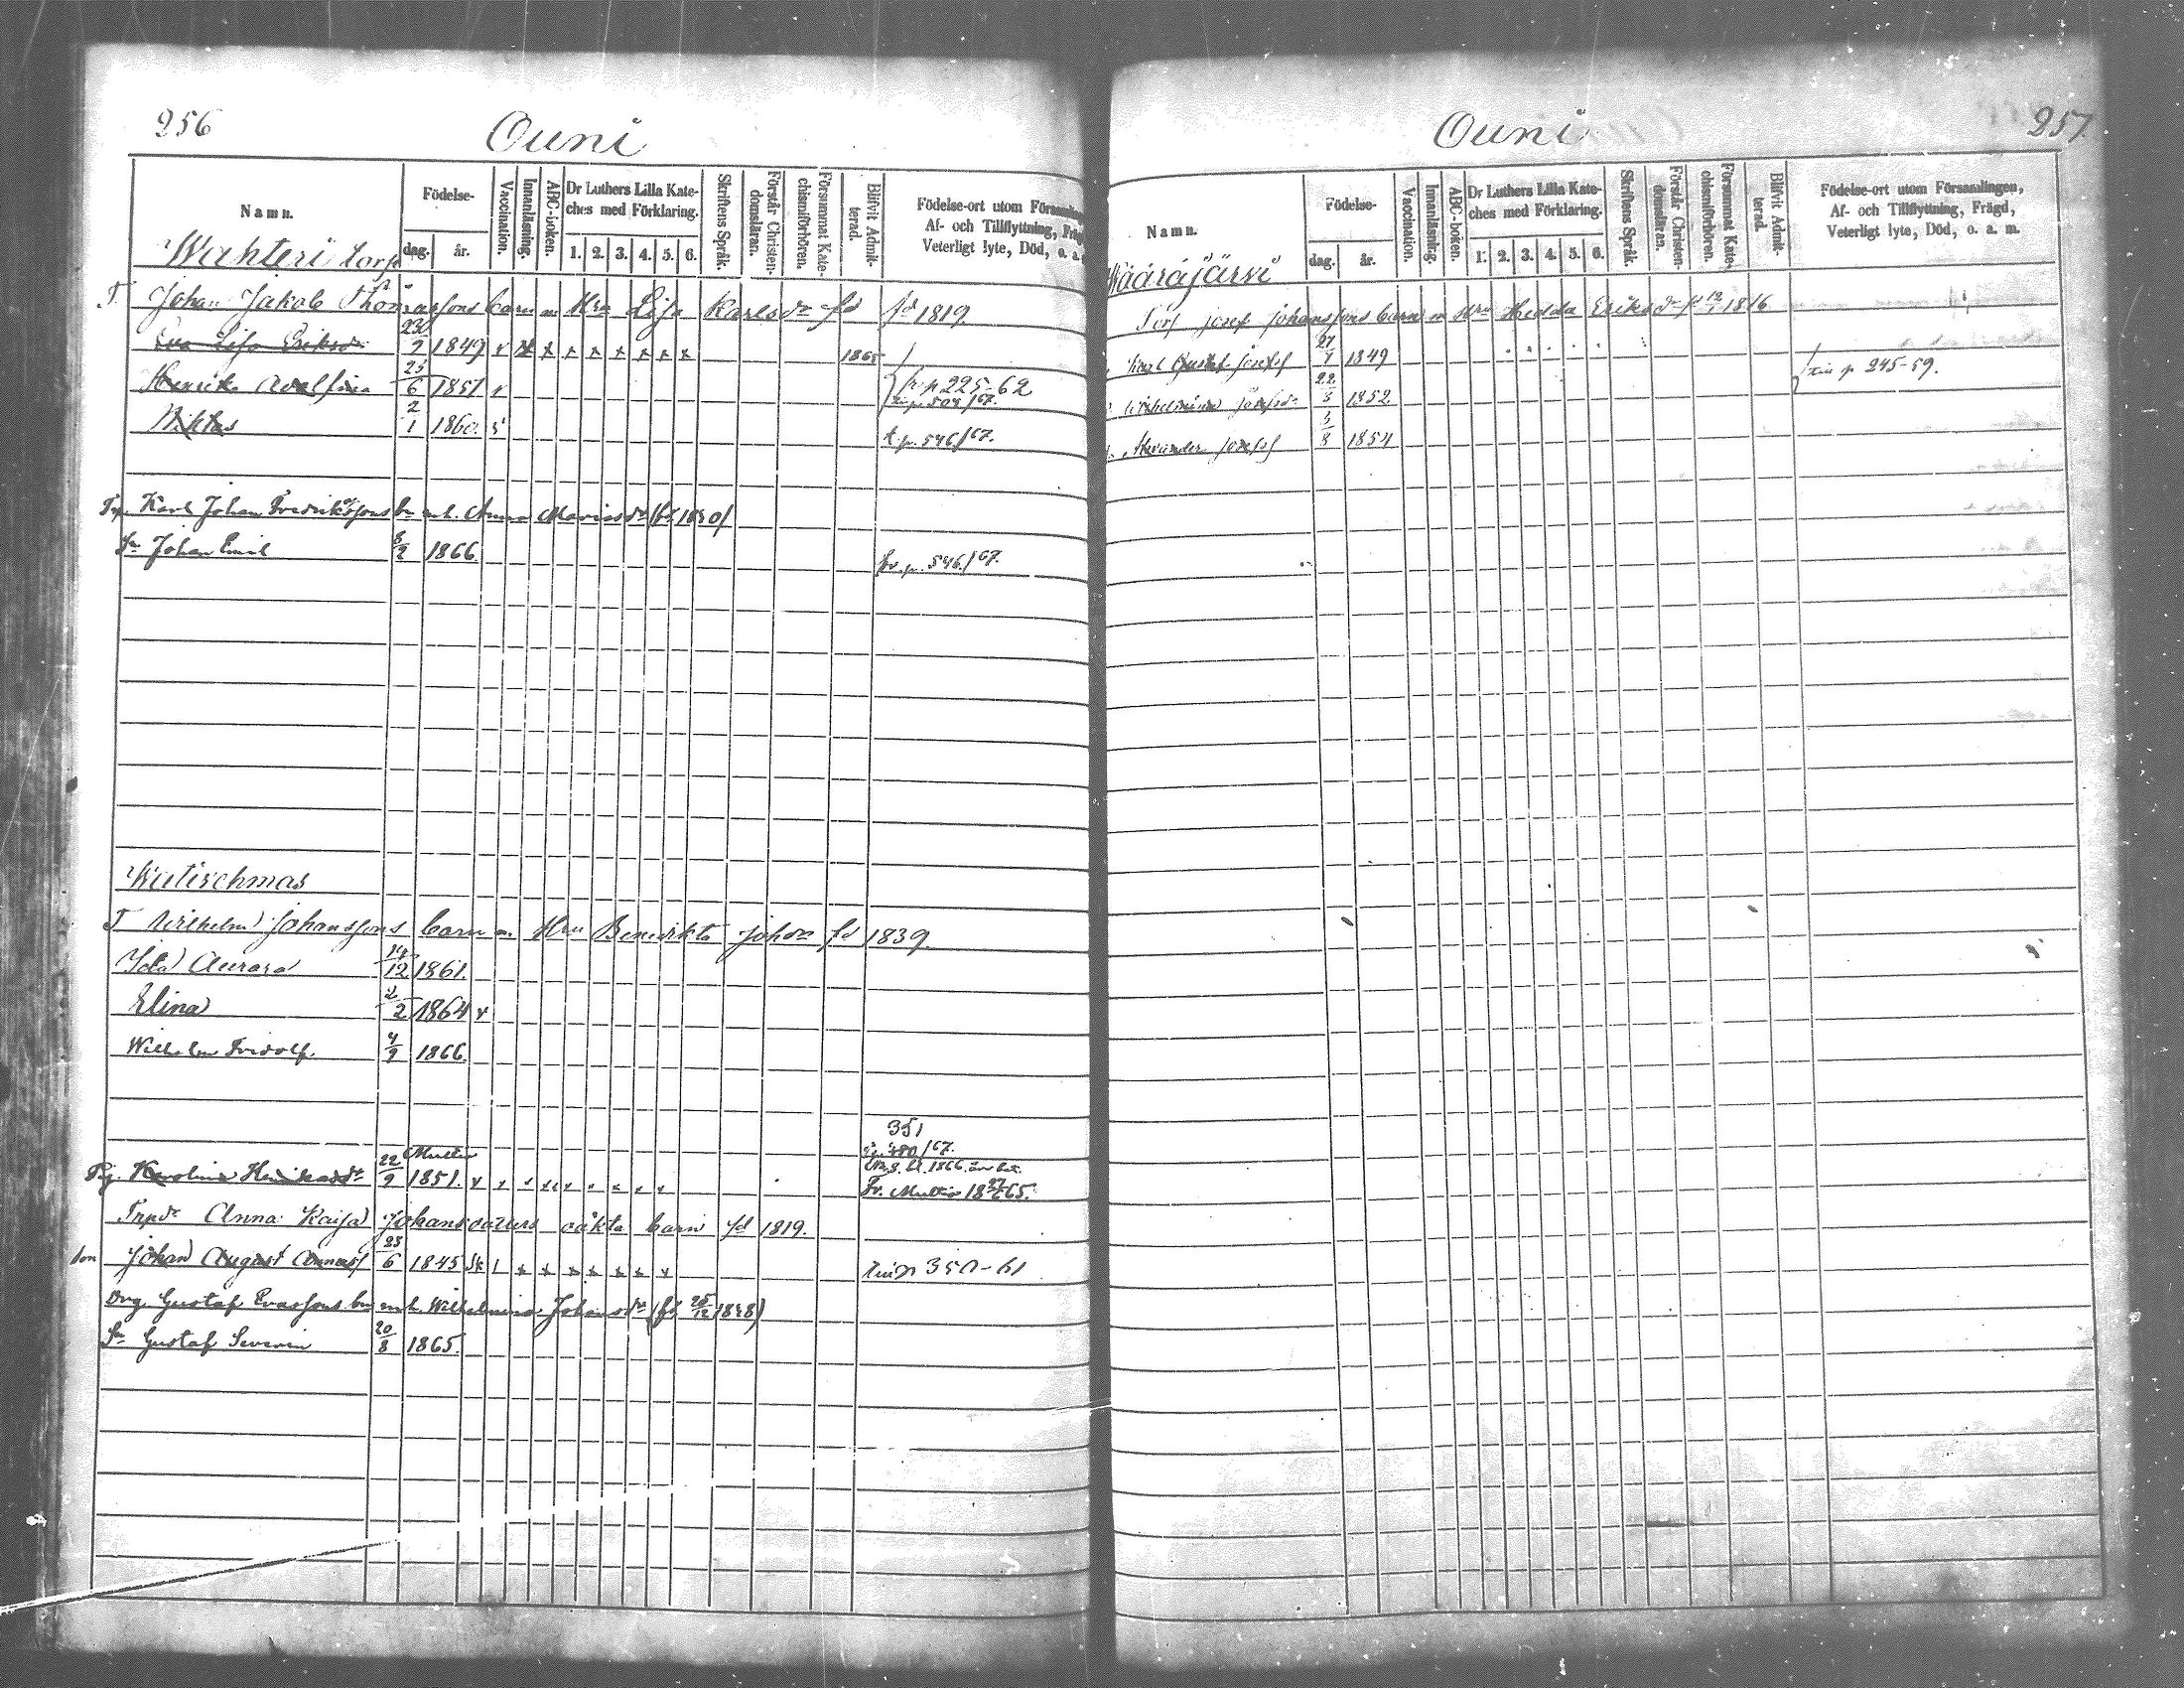 256
Ouni
Namn.
Födelse-
dag.
år.
Vaccination.
Innanläsning.
ABC-boken.
Dr Luthers Lilla Kate-
ches med Förklaring.
1. 2. 3. 4. 5. 6.
Skriftens Språk.
Förstår Christen-
domsläran.
Försummat Kate-
chismiförhören.
Blifvit Admit-
terad.
Födelse-ort utom Försam
Af- och Tillflyttning, Fräg
Veterligt lyte, Död, o. a.
Wahteri torp
T. Johan Jakob Thomassons barn m Hru Lisa Karlsdr fd fd 1819
Eva Lisa Eriksdr 23/9 1849 v x x x x x x x x 1865
Henrika Adolfina 25/6 1851 v fr p 225-62
Wiktor 2/1 1860 t.p. 546/67.
Karl Johan Fredrikssons bn m h. Anna Mariasdr (fd 1840)
Sn Johan Emil 8/2 1866. fr. p. 546/67.
Watischmas
T Wilhelm Johanssons barn m Hru Benedikta Johdr fd 1839.
Ida Aurora 14/12 1861.
Elina 2/2 1864 v
Wilhelm Fridolf. 4/9 1866.
351
Pig. Karolina Henriksdr 22/9 1851.
Fr. Multia 18 27/6 65.
Anna Kaisa Johansdotters oäkta barn fd 1819.
son Johan August Annasf 23/6 1845 350-61
Drg. Gustaf Evassons bn m h. Wilhelmina Johansdr (fd 25/12 1838)
Sn Gustaf Severin 20/8 1865.
Ouni
257.
Namn.
Födelse-
dag.
år.
Vaccination.
Innanläsning.
ABC-boken.
Dr Luthers Lilla Kate-
ches med Förklaring.
1. 2. 3. 4. 5. 6.
Skriftens Språk.
Förstår Christen-
domsläran.
Försummat Kate-
chismiförhören.
Blifvit Admit-
terad.
Födelse-ort utom Församlingen,
Af- och Tillflyttning, Frägd,
Veterligt lyte, Död, o. a. m.
Wääräjärvi
Torp Josef Johanssons barn m Hru Hedda Eriksdr fd 1816
Karl Gustaf Josefsf 1849
p 245-59.
Wilhelmina Josefsdr 22/3 1852
Alexander Josefsf 3/8 1854